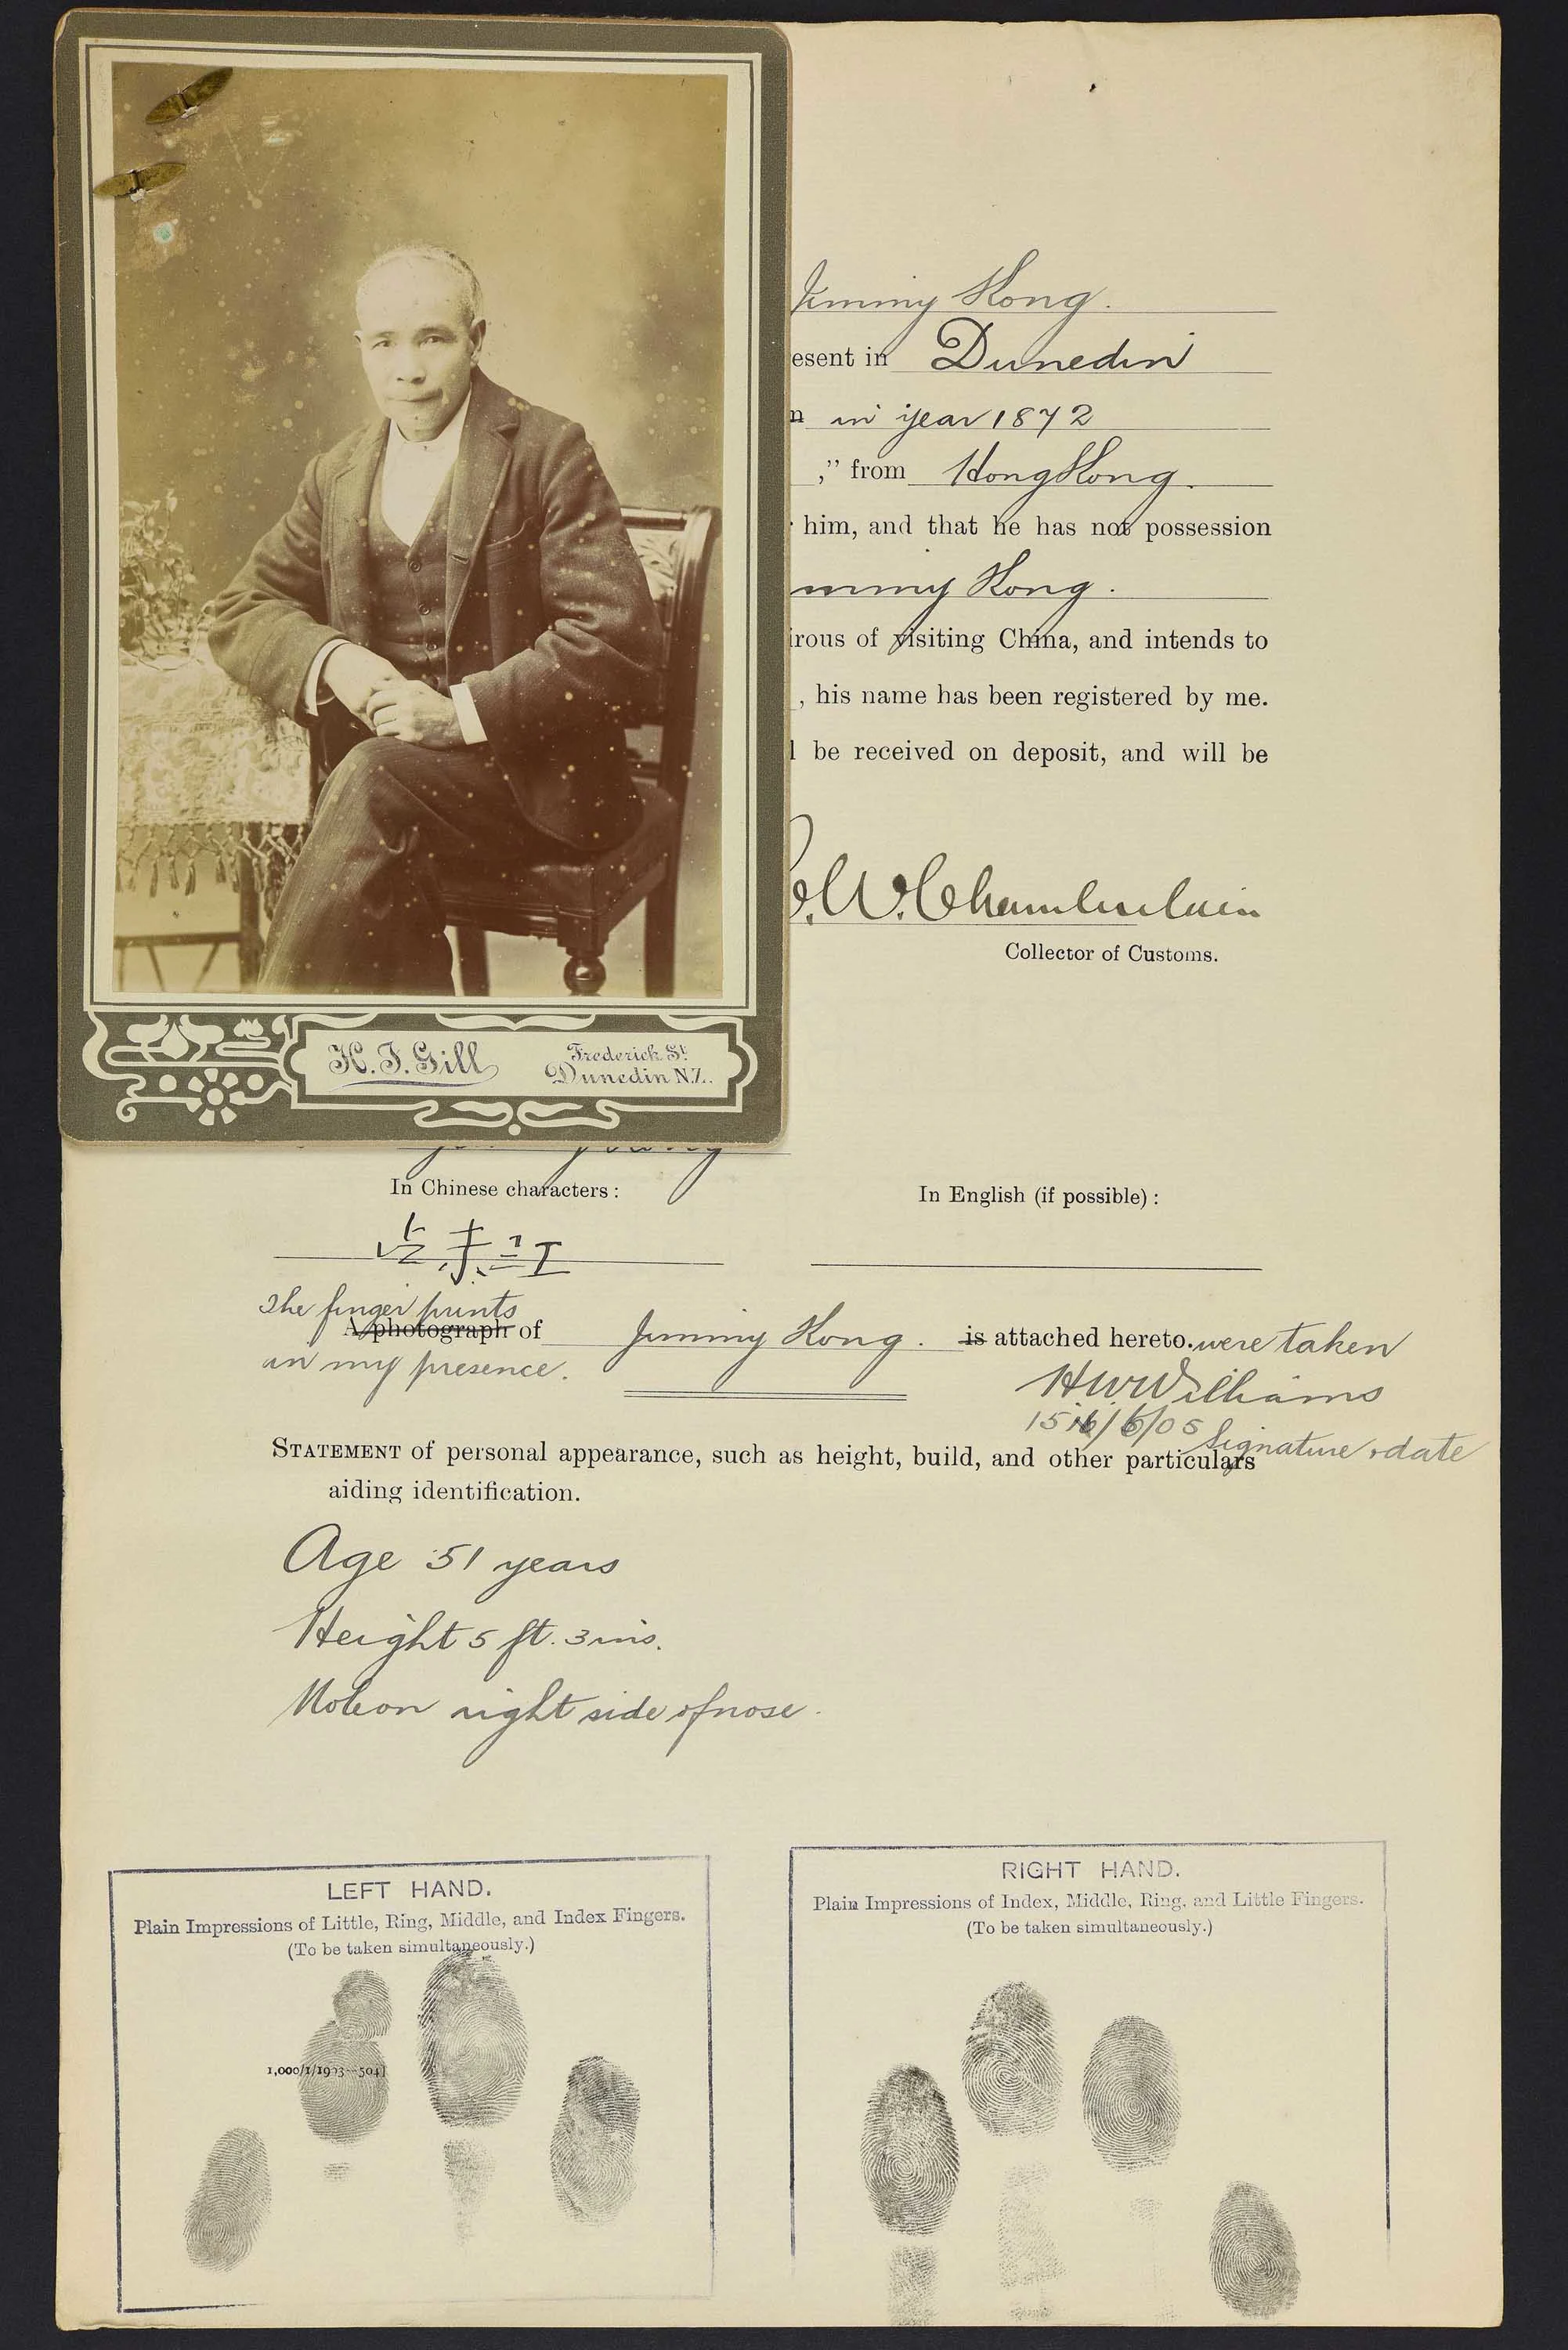 Jimmy Kong.
esent in Dunedin
n in year 1872
," from Hong Kong.
him, and that he has not possession
mmy Kong.
irous of visiting China, and intends to
, his name has been registered by me.
l be received on deposit, and will be
C.W. Chamberlain
Collector of Customs.
H. J. Gill Frederick St. Dunedin N.Z.
In Chinese characters: In English (if possible):
The finger prints
A photograph of Jimmy Kong. is attached hereto. were taken
in my presence.
HW Williams
/6/05 Signature & date
STATEMENT of personal appearance, such as height, build, and other particulars
aiding identification.
Age 51 years
Height 5 ft. 3 ins.
Mole on right side of nose.
LEFT HAND.
Plain Impressions of Little, Ring, Middle, and Index Fingers.
(To be taken simultaneously.)
1,000/1/1903—504]
RIGHT HAND.
Plain Impressions of Index, Middle, Ring, and Little Fingers.
(To be taken simultaneously.)